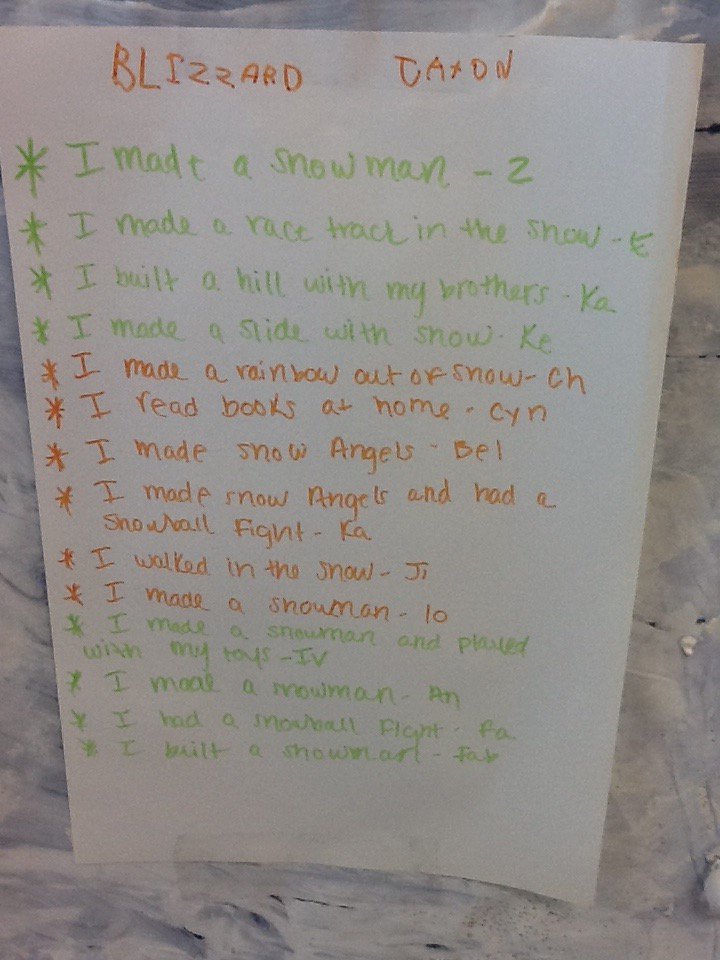 BLIZZARD JAXON
* I made a snowman - Z
* I made a race track in the snow - E
* I built a hill with my brothers - Ka
* I made a slide with snow - Ke
* I made a rainbow out of snow - Ch
* I read books at home - Cyn
* I made snow Angels - Bel
* I made snow Angels and had a
snowball Fight - Ka
* I walked in the snow - Ji
* I made a snowman - Io
* I made a snowman and played
with my toys - IV
* I made a snowman - An
* I had a snowball Fight - Fa
* I built a snowman - Fab